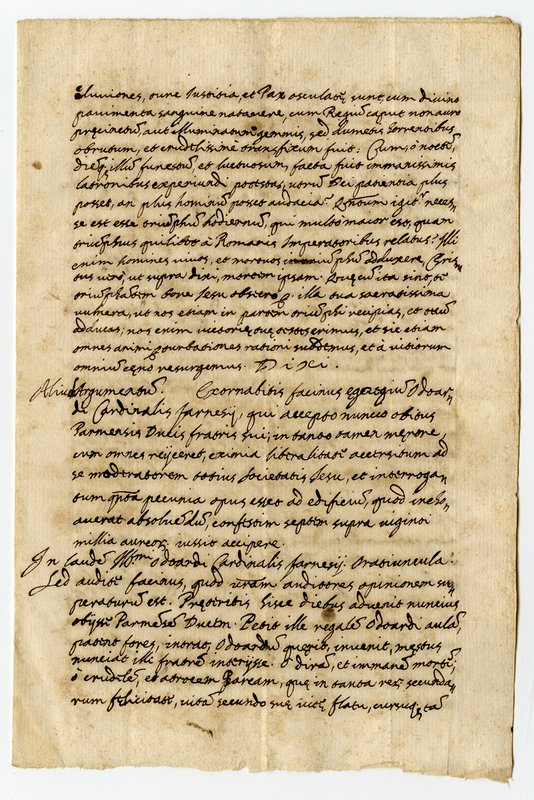 eluviones, cum Iustitia, et Pax osculatę sunt, cum divino
pavimenta sanguine natavere, cum Regũ caput non auro
pręcinctũ, aut illuminatum gemmis, sed dumetis horrentibus
obrutum, et crudelissimè transfixum fuit: Cum ò noctẽ,
diẽq, illũ funestũ, et luctuosum, facta fuit immanissimis
latronibus experiundi potestas, utrũ Dei patientia plus
posset, an plus hominũ posset audacia? Quotum igit necęs„
se est esse triũphũ hodiernũ, qui multò maior est, quam
triũphus quilibet à Romanis Imperatoribus relatus? Illi
enim homines vivos, et mortuos in triũphũ adduxere, Chris„
tus verò, ut supra dixi, mortem ipsam. Quę cũ ita sint, te
triũphãtem bone Iesu obsecro p illa tua sacratissima
vulnera, ut nos etiam in partem triũphi recipias, et tecũ
adducas; nos enim victorię tuę testes erimus, et sic etiam
omnes animi pturbationes rationi subdemus, et à vitiorum
omniũ cęno resurgemus. Dixi.
Aliud Argumentũ. Exornabitis facinus egregiũ Odoar„
di Cardinalis farnesij, qui accepto nuncio obitus
Parmensis Ducis fratris sui; in tanto tamen męrore,
cum omnes reijceret, eximia liberalitate accersitum ad
se moderatorem totius Societatis Iesu, et interroga„
tum quota pecunia opus esset ad edificiũ, quod incho„
averat absolvendũ, confestim septem supra viginti
millia aureor, iussit accipere.
In laudẽ Illmi Odoardi Cardinalis farnesij. Oratiuncula.
Sed audite facinus, quod vram auditores opinionem su„
peraturũ est. Pręteritis hisce diebus advenit nuncius
obijsse Parmẽsẽ Ducem. Petit ille regale Odoardi aulã,
patent fores, intrat, Odoardũ quęrit, invenit, męstus
nunciat illi fratrẽ interijsse. O dirã, et immanẽ mortẽ;
ò crudelẽ, et atrocem Parcam, quę in tanta rer, secunda„
rum felicitate, vitã secundo suę vitę flatu, cursuq, tã